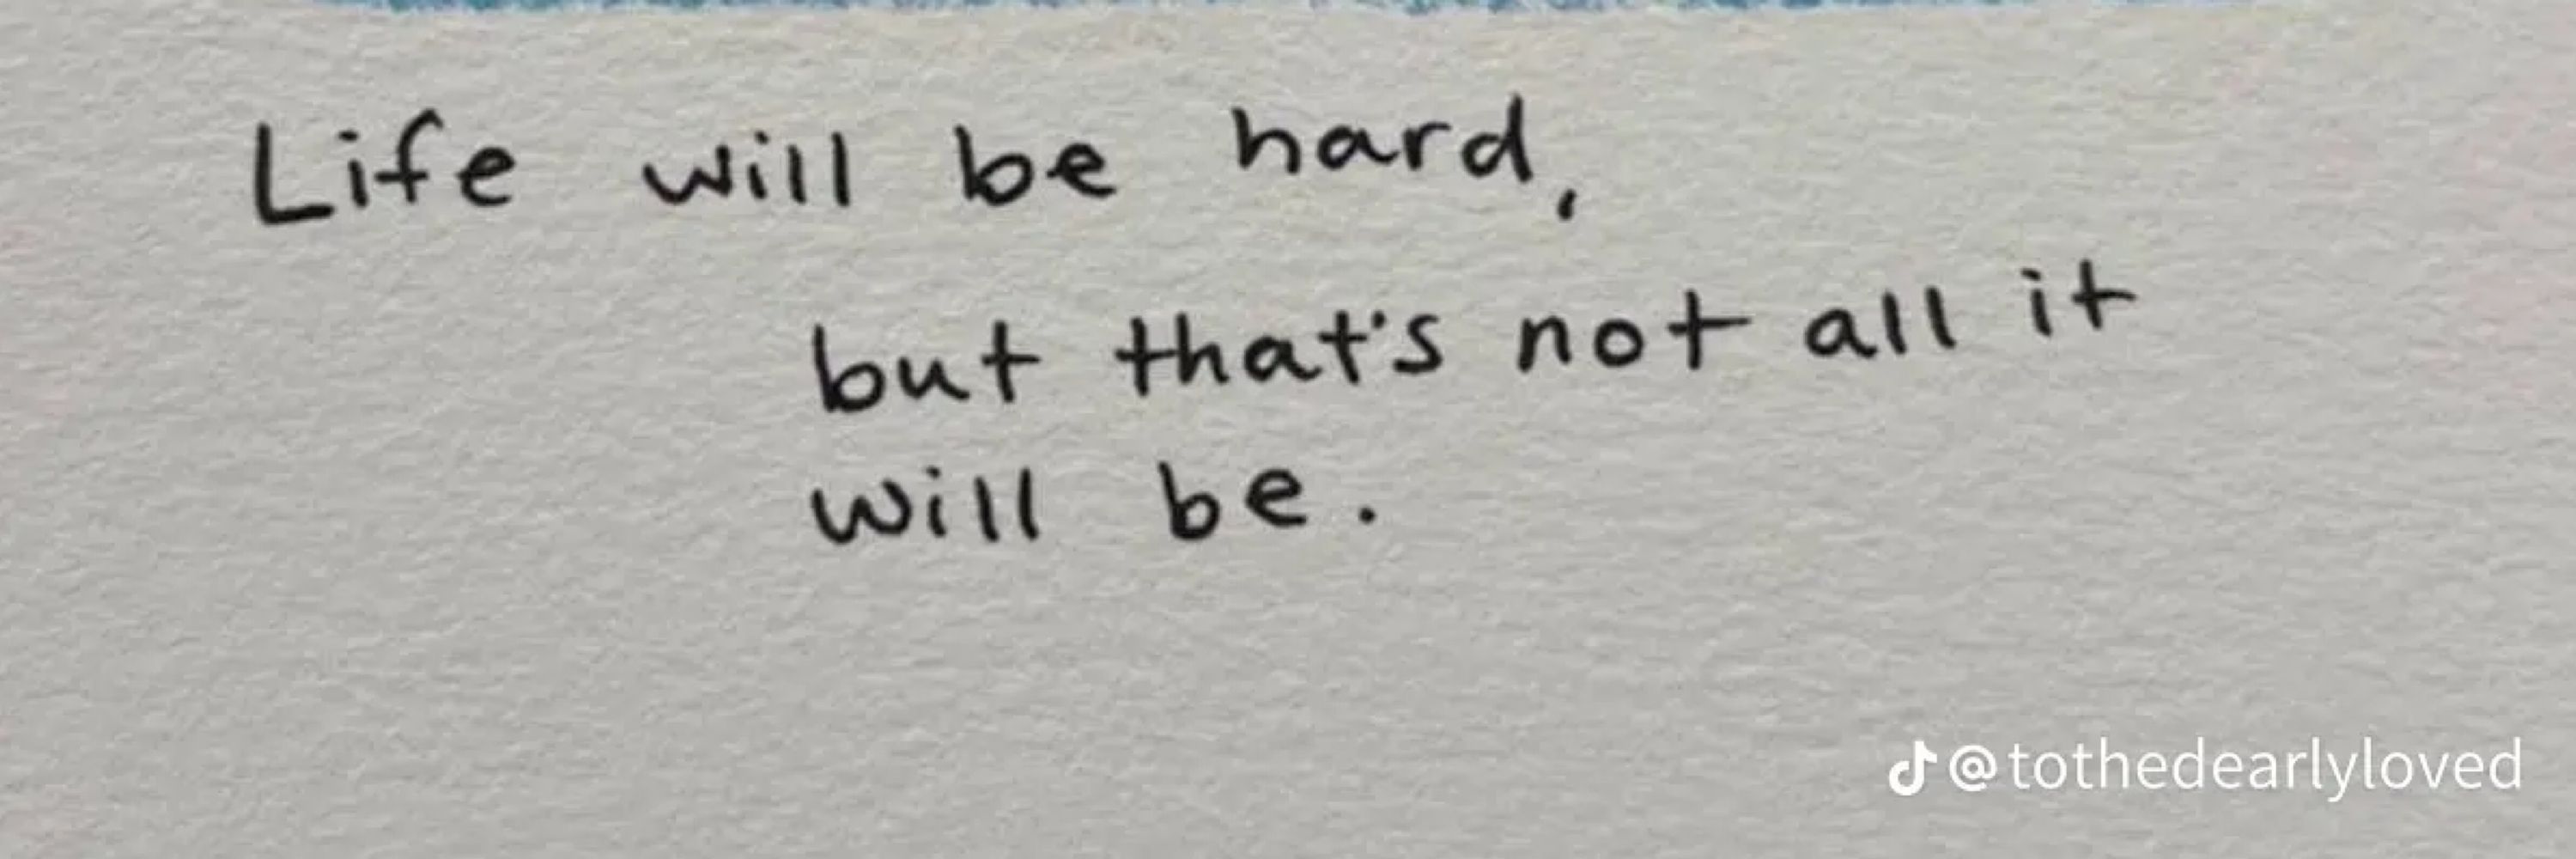 Life will be hard,
but that's not all it
will be.
@tothedearlyloved